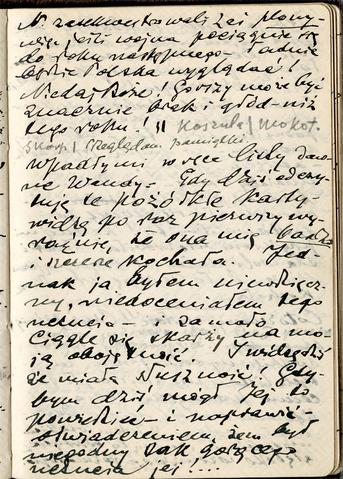 N. zarekwirowali zaś plony-
więc jeśli wojna pociągnie się
do roku następnego - ładnie
będzie Polska wyglądać!
Niedaj Boże! Gorszy może być
znacznie brak i głód - niż
tego roku! || Koszule/mokot.
Przeglądam pamiątki
Wpadły mi w ręce listy daw-
ne Wandy - Gdy dziś odczy-
tuję te pożółkłe kartki
widzę po raz pierwszy wy-
raźnie, że ona mię bardzo
i szczerze kochała. Jed-
nak ja byłem niewdzięcz-
ny, niedoceniałem Jego
uczucia - i za mało.
Ciągle się skarży na mo-
ją obojętność. I widzę dziś
że miała słuszność! Gdy-
bym dziś mógł Jej to
powiedzieć - i naprawić -
oświadczeniem, żem był
niegodny tak gorącego
uczucia jej!...